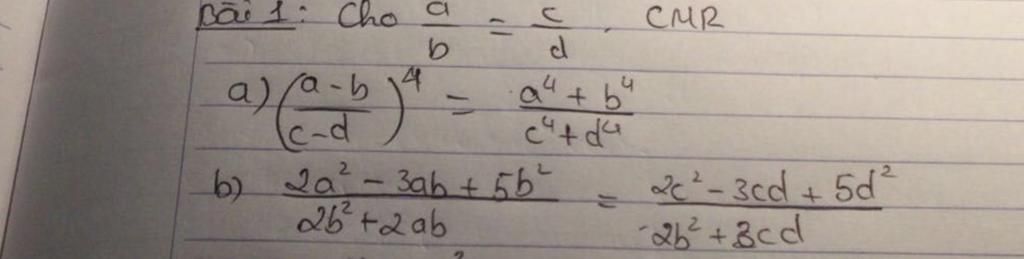 Bài 1: Cho a/b = c/d. CMR
a) ((a-b)/(c-d))^4 = (a^4 + b^4)/(c^4 + d^4)
b) (2a² - 3ab + 5b²)/(2b² + 2ab) = (2c² - 3cd + 5d²)/(2b² + 3cd)